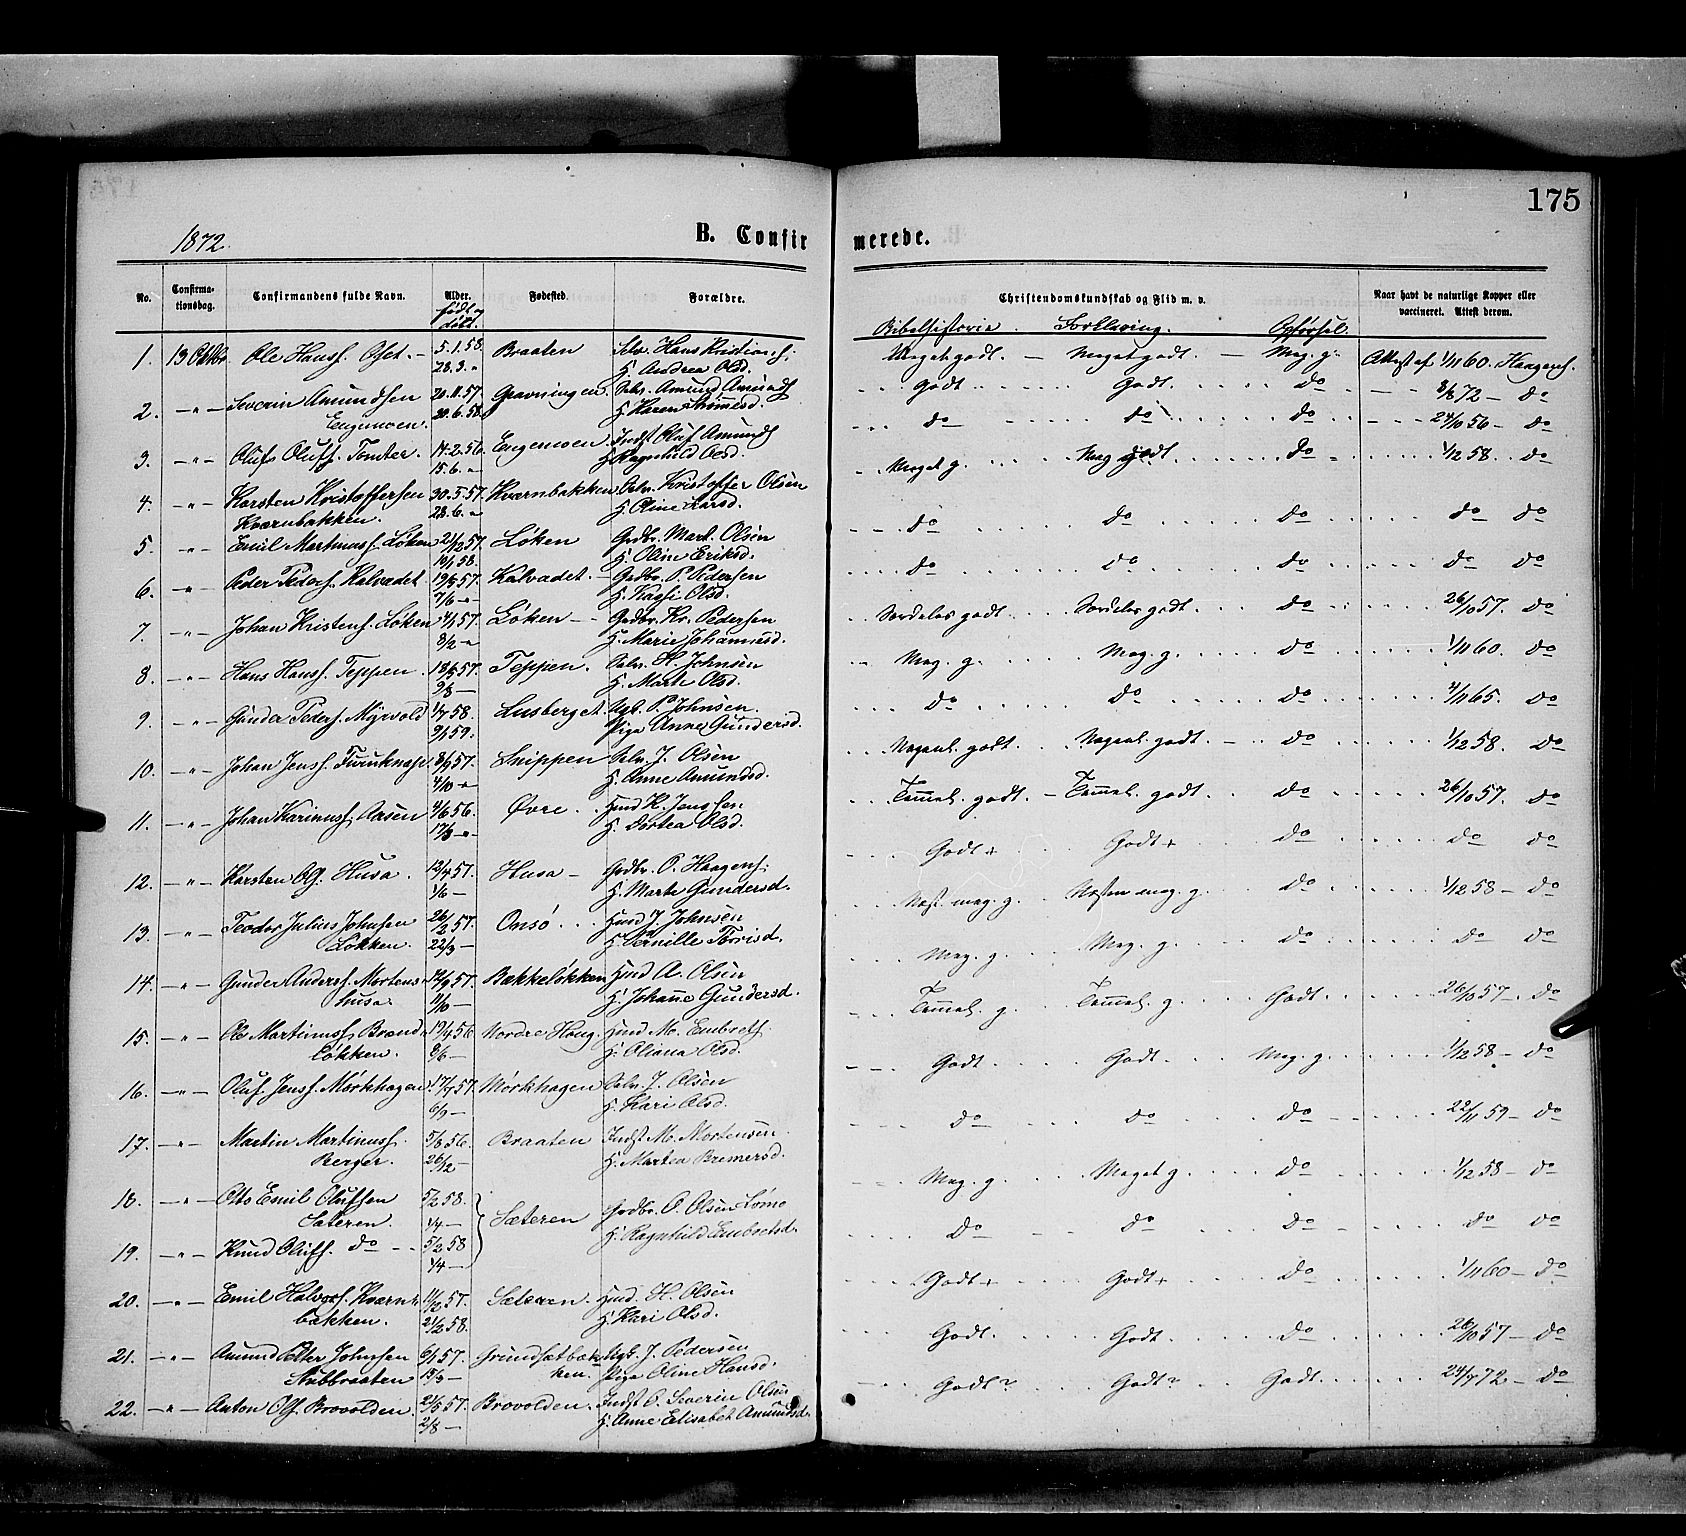 175
1872.
B. Confirmerede.
No. Confirmationsdag. Confirmandens fulde Navn. Alder. født og døbt. Fødested. Forældre. Christendomskundskab og Flid m. v. Naar havt de naturlige Kopper eller vaccineret. Attest derom.
Bibelhistorie. Forklaring. Opførsel.
1. 13 Oktbr Ole Hanss. Oset. 5.1.58 Braaten Selv. Hans Kristians. Meget godt. Meget godt. Meg. g. Attest af 1/11 60. Haagens.
28.3. " H. Andrea Olsd.
2. " Severin Amundsen 20.11.57 Gravningen. Selv. Amund Amunds Godt Godt. do 8/8 72 do
Engemoen. 20.6.58. H. Karen
3. " Olufs. Tomter. 14.2.56. Engemoen. Indst Oluf Amunds do do do 24/10 56 do
15.6. " H. Ragnhild Olsd.
4. " Karsten Kristoffersen 30.5.57. Kværnbakken Selv. Kristoffer Olsen Meget g. Meg godt. do 1/12 58. do
Kværnbakken. 28.6. " H. Oline Larsd.
5. " Emil Martinuss. Løken 21/12 57. Løken Grdbr. Mart. Olsen do do do do do
10/1 58. H. Oline Eriksd.
6. " Peder Peders. Kalvadet 57. Kalvadet Grdbr. P. Pedersen do do do do do
7/6 H. Kagsi Olsd.
7. " Johan Kristens. Løken 4/1 57. Løken Grdbr. Kr. Pedersen Serdeles godt. Serdeles godt. do 26/10 57. do
8/2 H. Marie Johannesd.
8. " Hans Hanss. Teppen. 57. Teppen. Selv. H. Johnsen Meg. g. Meg. g. do 1/11 60. do
9/8 H. Marte Olsd.
9. " Gunder Peders. Myrvold 1/7 58. Lusberget. Ugk. P. Johnsen. do do do 4/11 65. do
9/1 59. Pige Anne Gundersd.
10. " Johan Jenss. Furuknap. 8/9 57. Snippen Selv. J. Olsen Nogenl. godt. Nogenl. godt. do 1/12 58. do
4/10 H. Anne Amundsd.
11. " Johan Karinuss. Aasen 4/6 56. Øvre. Hmd K. Jenssen Temmel. godt. Temmel. godt. do 26/10 57. do
17/8 H. Dortea Olsd.
12. " Karsten Ols. Husa. 12/4 57. Husa Grdbr. O. Haagens. Godt+ Godt+ do do do
1/6 H. Marte Gundersd.
13. " Teodor Julius Johnsen 26/2 57. Onsø Hmd J. Johnsen Næst. meg. g. Næsten meg. g. do 1/12 58 do
Løkken. 22/3 H. Pernille Torrisd.
14. " Gunder Anderss. Mortens- 14/9 57. Bakkeløkken Hmd A. Olsen Meg. g. Meg. g. do do do
husa. 11/10 H. Johanne Gundersd.
15. " Ole Martinuss. Brænd- 19/4 56 Nordre Haug. Hmd M. Embrets. Temmel. g. Temmel. g Godt 26/10 57. do
løkken. 8/6 H. Oliana Olsd.
16. " Oluf Jenss. Mørkhagen 17/7 57. Mørkhagen Selv. J. Olsen Godt Godt. Meg. g. 1/12 58 do
6/9 H. Kari Olsd.
17. " Martin Martinuss. 5/8 56. Braaten Indst M. Mortensen do do do 22/11 59 do
Berger. 26/12 H. Martea Bremersd.
18. " Otto Emil Olufsen 5/2 58. Sæteren Grdbr. O. Olsen Lømo Meg. g. Meget g. do 1/12 58 do
Sæteren. 1/4 H. Ragnhild Embretsd.
19. " Knud Olufs. do 5/2 58 do do do do do
1/4
20. " Emil Halvors. Kværn- 11/12 57. Sæteren. Hmd. H. Olsen Godt+ Godt+ do 1/11 60 do
bakken. 21/2 58. H. Kari Olsd.
21. " Amund Petter Johnsen 6/1 57. Grundsætbæk- Ugk. J. Pedersen Godt. Godt. do 26/10 57 do
Stubbraaten 15/3 ken. Pige Oline Hansd.
22. " Anton Ols. Brovolden. 21/5 57. Brovolden. Indst O. Severin Olsen Godt? Godt? Godt 24/7 72 do
2/8 H. Anne Elisabet Amundsd.